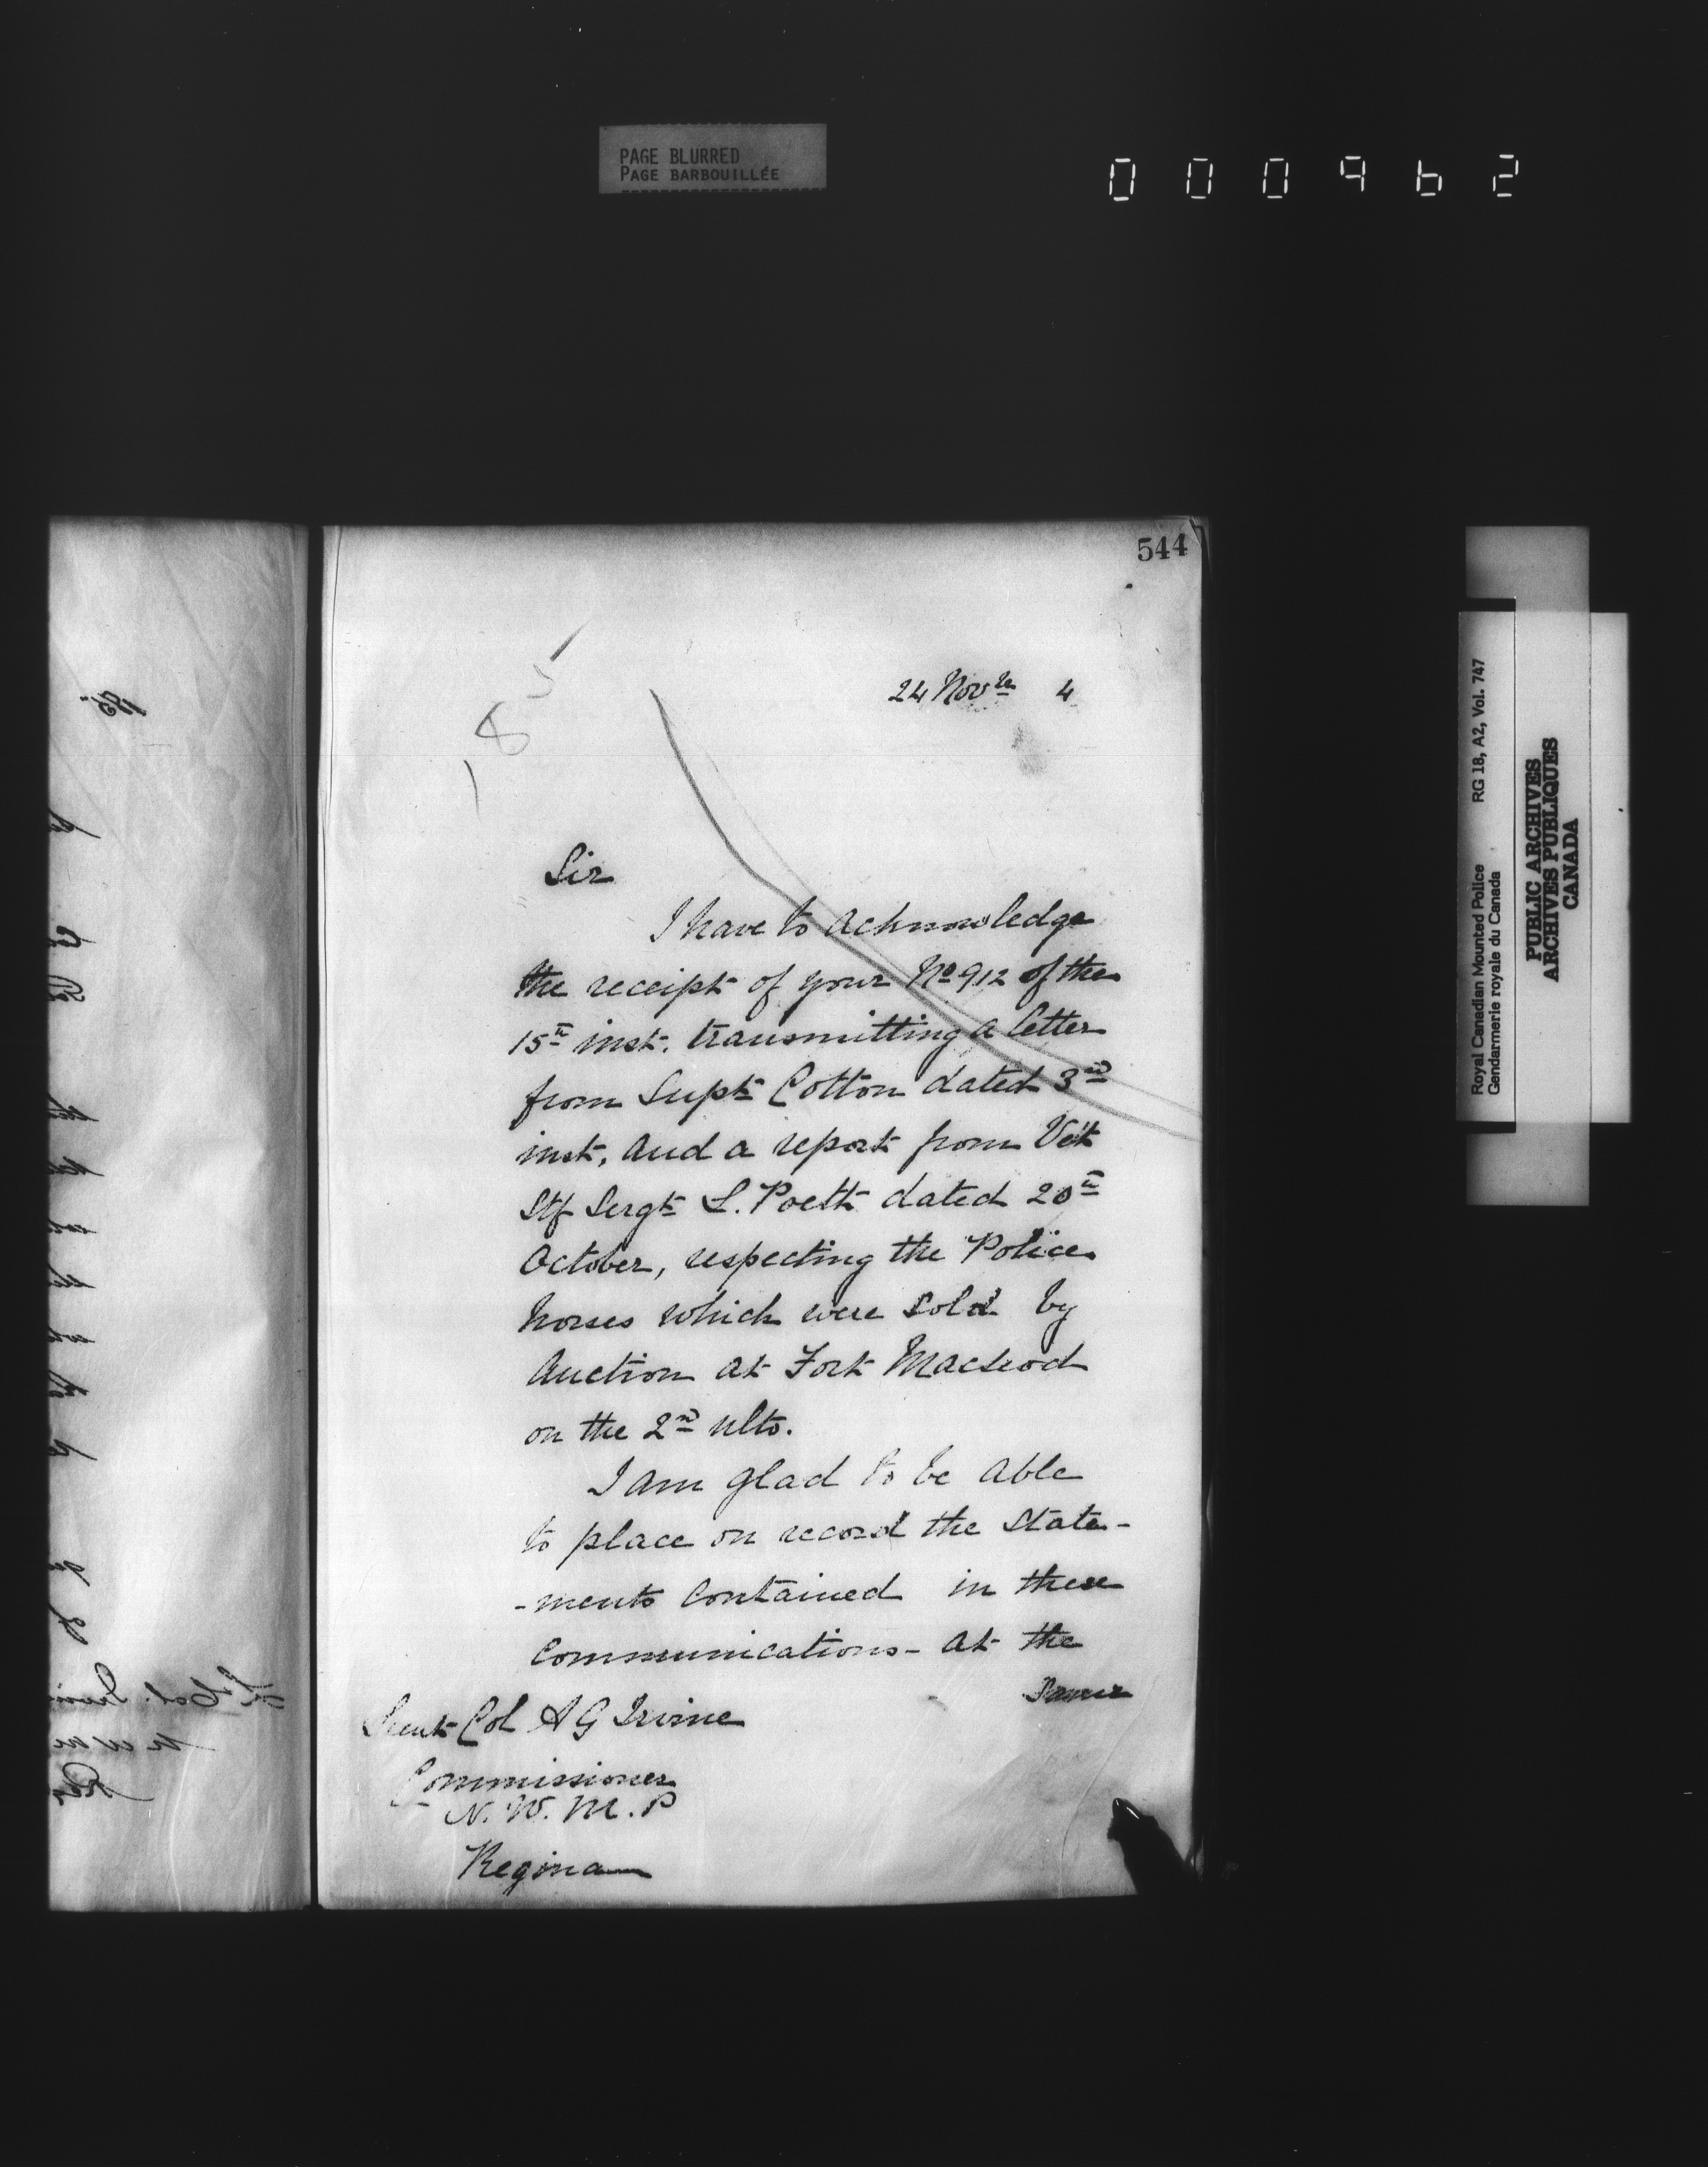 PAGE BLURRED
PAGE BARBOUILLÉE
000962
544
185
24 Novr 4
Sir
I have to acknowledge
the receipt of your No 912 of the
15th inst. transmitting a letter
from Supt Cotton dated 3rd
inst, and a report from Vet
Stf Sergt L. Poett dated 20th
October, respecting the Police
horses which were sold by
Auction at Fort Macleod
on the 2nd ulto.
I am glad to be able
to place on record the state-
-ments contained in these
communications - at the
same
Lieut Col A G Irvine
Commissioner
N. W. M. P
Regina
Royal Canadian Mounted Police RG 18, A2, Vol. 747
Gendarmerie royale du Canada
PUBLIC ARCHIVES
ARCHIVES PUBLIQUES
CANADA